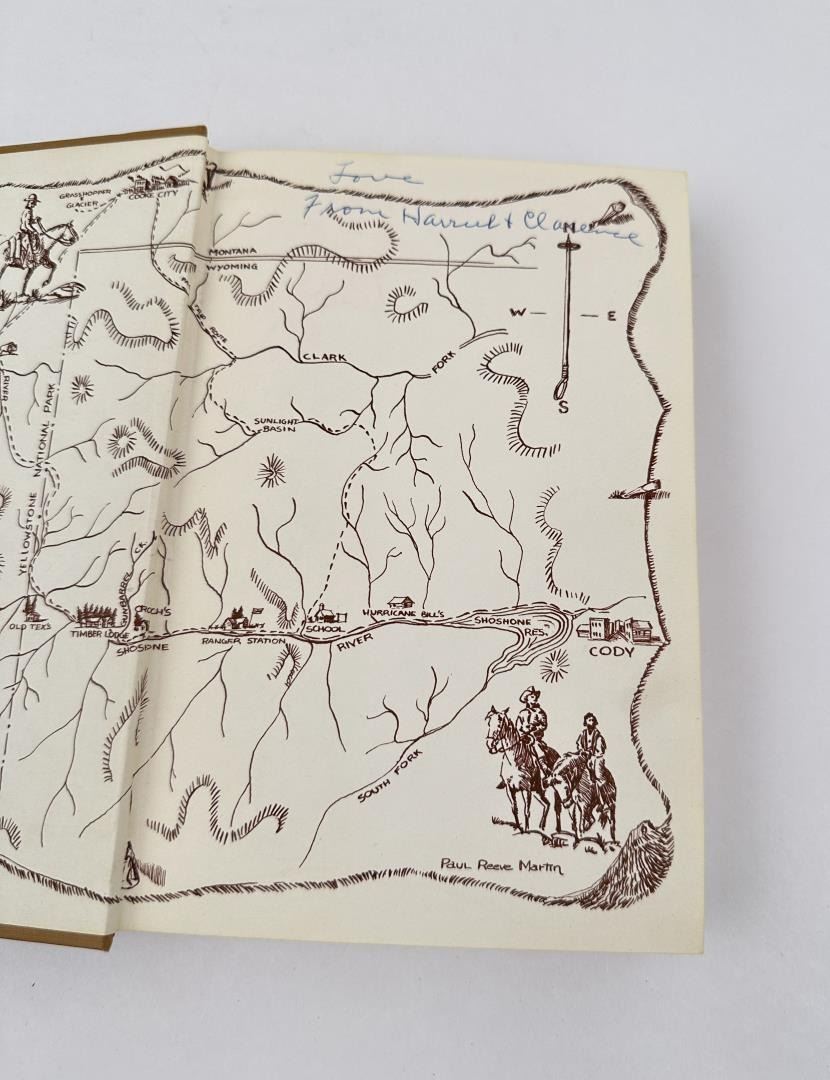 Love
From Harriet & Clarence
GRASSHOPPER
GLACIER
COOKE CITY
N
MONTANA
WYOMING
W
E
S
CLARK
FORK
RIVER
SUNLIGHT
BASIN
YELLOWSTONE NATIONAL PARK
GUNBARREL CK.
HURRICANE BILL'S
SHOSHONE
RES.
OLD TEX'S
TIMBER LODGE
SHOSHONE
RANGER STATION
SCHOOL
RIVER
CODY
SOUTH FORK
Paul Reeve Martin